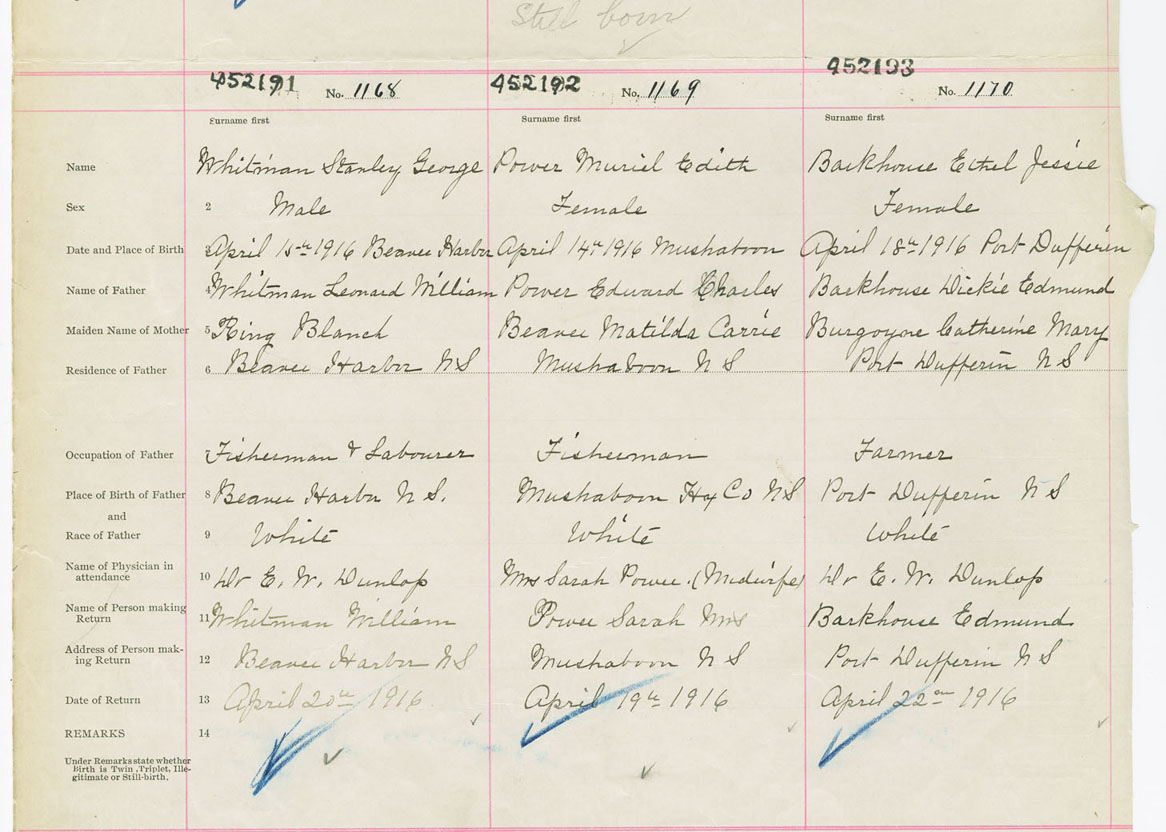 Still born
452191 No. 1168 452192 No. 1169 452193 No. 1170
Surname first Surname first Surname first
Name Whitman Stanley George Power Muriel Edith Barkhouse Ethel Jessie
Sex 2 Male Female Female
Date and Place of Birth 3 April 15th 1916 Beaver Harbor April 14th 1916 Mushaboon April 18th 1916 Port Dufferin
Name of Father 4 Whitman Leonard William Power Edward Charles Barkhouse Dickie Edmund
Maiden Name of Mother 5 King Blanch Beaver Matilda Carrie Burgoyne Catherine Mary
Residence of Father 6 Beaver Harbor N S Mushaboon N S Port Dufferin N S
Occupation of Father 7 Fisherman & Labourer Fisherman Farmer
Place of Birth of Father 8 Beaver Harbor N S. Mushaboon Hx Co N S Port Dufferin N S
and
Race of Father 9 White White White
Name of Physician in
attendance 10 Dr E. W. Dunlop Mrs Sarah Power. (Midwife) Dr E. W. Dunlop
Name of Person making
Return 11 Whitman William Power Sarah Mrs Barkhouse Edmund
Address of Person mak-
ing Return 12 Beaver Harbor N S Mushaboon N S Port Dufferin N S
Date of Return 13 April 20th 1916 April 19th 1916 April 22nd 1916
REMARKS 14
Under Remarks state whether
Birth is Twin, Triplet, Ille-
gitimate or Still-birth.